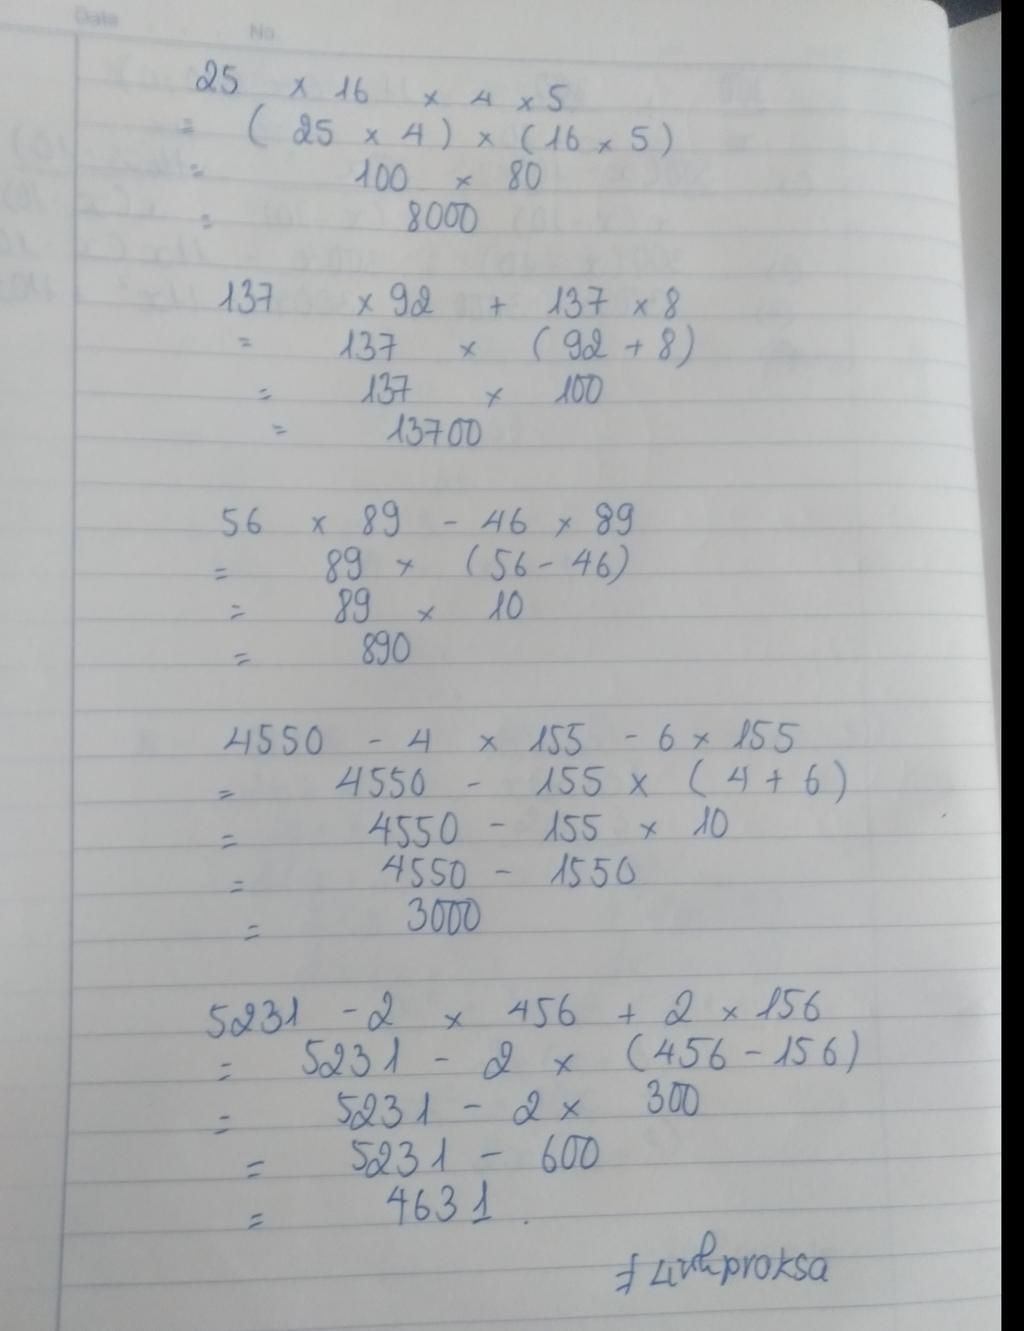 Date
No.
25 × 16 × 4 × 5
= ( 25 × 4 ) × ( 16 × 5 )
= 100 × 80
= 8000
137 × 92 + 137 × 8
= 137 × ( 92 + 8 )
= 137 × 100
= 13700
56 × 89 - 46 × 89
= 89 × ( 56 - 46 )
= 89 × 10
= 890
4550 - 4 × 155 - 6 × 155
= 4550 - 155 × ( 4 + 6 )
= 4550 - 155 × 10
= 4550 - 1550
= 3000
5231 - 2 × 456 + 2 × 156
= 5231 - 2 × ( 456 - 156 )
= 5231 - 2 × 300
= 5231 - 600
= 4631.